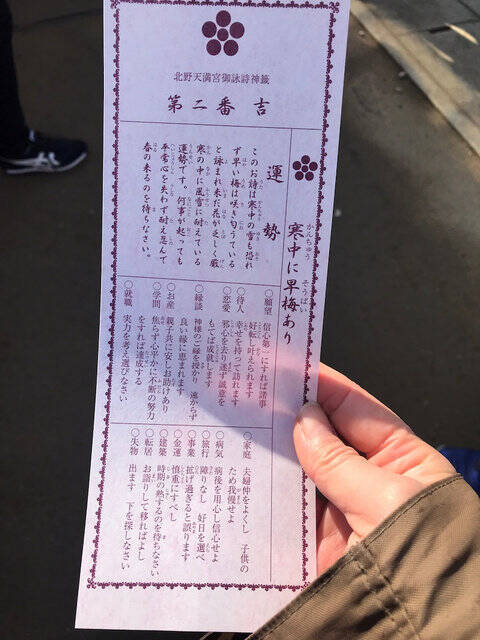 北野天満宮御詠詩神籤
第二番 吉
寒中に早梅あり
かんちゅう そうばい
運勢
このお詩は寒中の雪も恐れ
ず早い梅は咲き匂うている
と詠まれ未だ花が乏しく厳
寒の中に風雪に耐えている
運勢です。何事が起っても
平常心を失わず耐え忍んで
春の来るのを待ちなさい。
○願望 信心第一にすれば諸事
好転し叶えられます
○待人 幸せを持って訪れます
○恋愛 邪心を去り迷ず誠意を
もてば成就します
○縁談 神様のご縁を授かり 遠からず
良い縁に恵まれます
○お産 親子共に安しお助けあり
○学問 焦らず心平かに不断の努力
をすれば達成する
○就職 実力を考え選びなさい
○家庭 夫婦仲をよくし 子供の
ため我慢せよ
○病気 病後を用心し信心せよ
○旅行 障りなし 好日を選べ
○事業 拡げ過ぎると誤ります
○金運 慎重にすべし
○建築 時期の熟するのを待ちなさい
○転居 お詣りして移ればよし
○失物 出ます 下を探しなさい